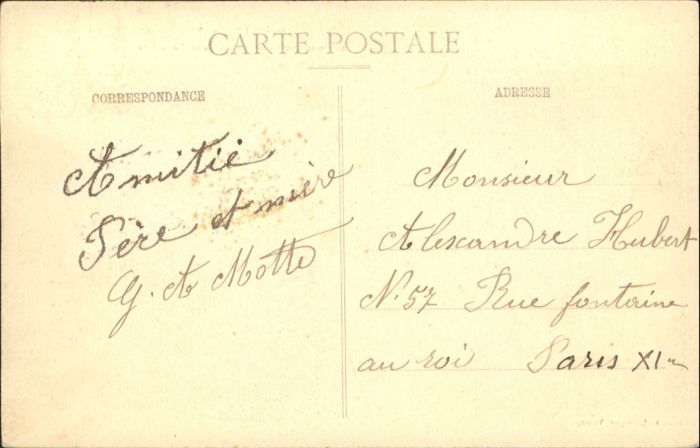 CARTE POSTALE
CORRESPONDANCE
ADRESSE
Amitié
Père et mère
G. A Motte
Monsieur
Alexandre Hubert
N. 57 Rue fontaine
au roi Paris XIe